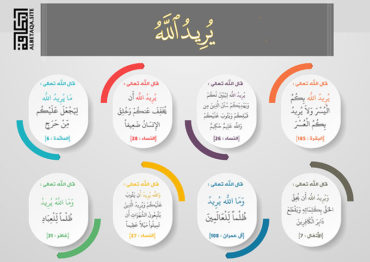 البطاقة
ALBETAQA.SITE
يُرِيدُ ٱللَّهُ
قال الله تعالى :
يُرِيدُ اللَّهُ بِكُمُ
الْيُسْرَ وَلَا يُرِيدُ
بِكُمُ الْعُسْرَ
[البقرة : 185]
قال الله تعالى :
يُرِيدُ اللَّهُ لِيُبَيِّنَ لَكُمْ
وَيَهْدِيَكُمْ سُنَنَ الَّذِينَ مِن
قَبْلِكُمْ وَيَتُوبَ عَلَيْكُمْ
وَاللَّهُ عَلِيمٌ حَكِيمٌ
[النساء : 26]
قال الله تعالى :
يُرِيدُ اللَّهُ أَن
يُخَفِّفَ عَنكُمْ وَخُلِقَ
الْإِنسَانُ ضَعِيفًا
[النساء : 28]
قال الله تعالى :
مَا يُرِيدُ اللَّهُ
لِيَجْعَلَ عَلَيْكُم
مِّنْ حَرَجٍ
[المائدة : 6]
قال الله تعالى :
وَيُرِيدُ اللَّهُ أَن يُحِقَّ
الْحَقَّ بِكَلِمَاتِهِ وَيَقْطَعَ
دَابِرَ الْكَافِرِينَ
[الأنفال : 7]
قال الله تعالى :
وَمَا اللَّهُ يُرِيدُ
ظُلْمًا لِّلْعَالَمِينَ
[آل عمران : 108]
قال الله تعالى :
وَاللَّهُ يُرِيدُ أَن يَتُوبَ
عَلَيْكُمْ وَيُرِيدُ الَّذِينَ
يَتَّبِعُونَ الشَّهَوَاتِ أَن
تَمِيلُوا مَيْلًا عَظِيمًا
[النساء : 27]
قال الله تعالى :
وَمَا اللَّهُ يُرِيدُ
ظُلْمًا لِّلْعِبَادِ
[غافر : 31]